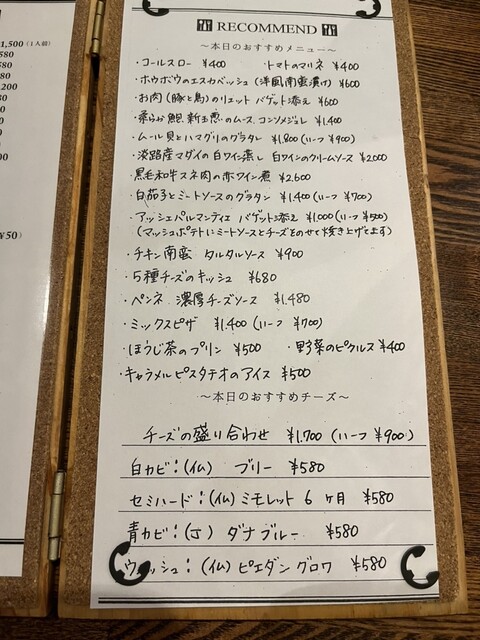 1,500(1人前)
580
580
,200
¥50)
RECOMMEND
～本日のおすすめメニュー～
・コールスロー ¥400 ・トマトのマリネ ¥400
・ホウボウのエスカベッシュ(洋風南蛮漬け) ¥600
・お肉(豚と鳥)のリエット バゲット添え ¥600
・柔らか鮑 新玉葱のムース コンソメジュレ ¥1,400
・ムール貝とハマグリのグラタン ¥1,800(ハーフ ¥900)
・淡路産マダイの白ワイン蒸し 白ワインのクリームソース ¥2,000
・黒毛和牛スネ肉の赤ワイン煮 ¥2,600
・白茄子とミートソースのグラタン ¥1,400(ハーフ ¥700)
・アッシェパルマンティエ バゲット添え ¥1,000(ハーフ ¥500)
(マッシュポテトにミートソースとチーズをのせて焼き上げてます)
・チキン南蛮 タルタルソース ¥900
・5種チーズのキッシュ ¥680
・ペンネ 濃厚チーズソース ¥1,480
・ミックスピザ ¥1,400(ハーフ ¥700)
・ほうじ茶のプリン ¥500 ・野菜のピクルス ¥400
・キャラメルピスタチオのアイス ¥500
～本日のおすすめチーズ～
チーズの盛り合わせ ¥1,700(ハーフ ¥900)
白カビ:(仏) ブリー ¥580
セミハード:(仏) ミモレット 6ヶ月 ¥580
青カビ:(J) ダナブルー ¥580
ウォッシュ:(仏) ピエダングロワ ¥580